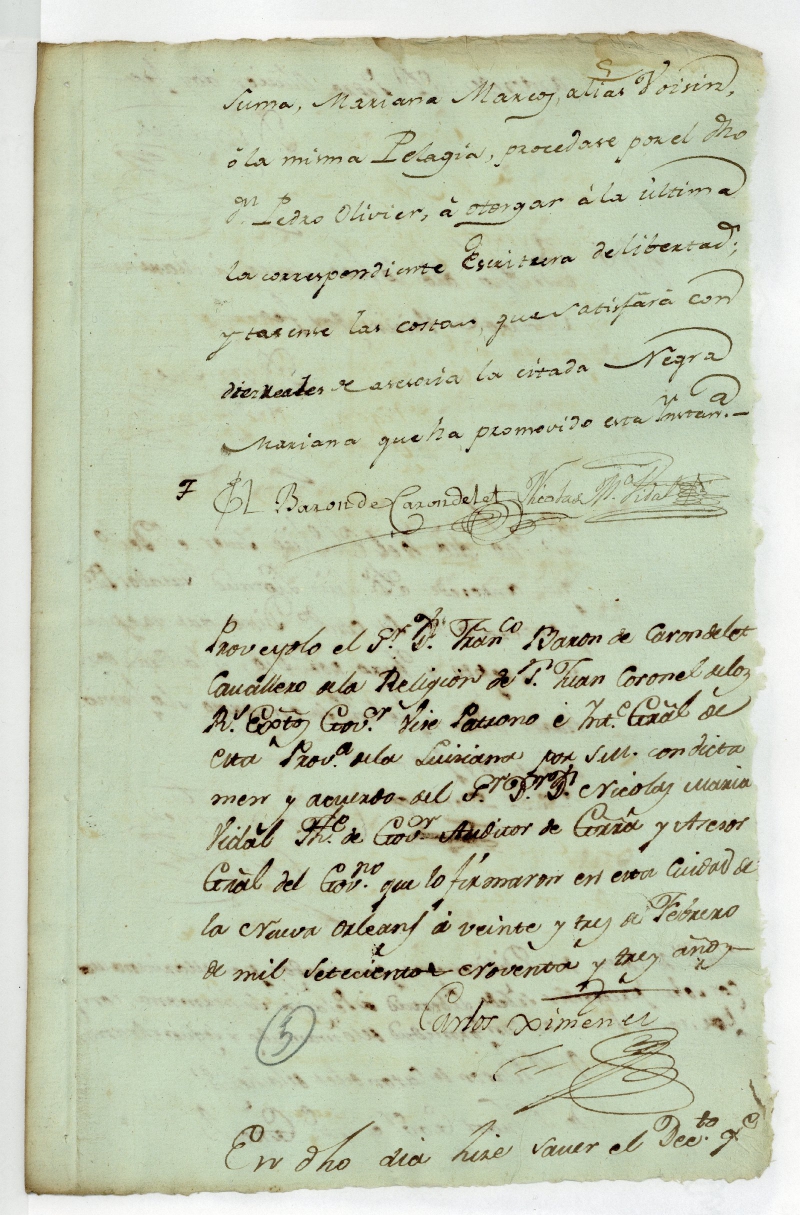 suma, Mariana Marcos, alias Voisin,
ó la misma Pelagia, procedase por el dho
Dn. Pedro Olivier, á otorgar á la última
la correspondiente Escritura de libertad;
y tasense las costas, que satisfará con
diez reales de asesoria la citada Negra
Mariana que ha promovido esta Instana.—
El Baron de Carondelet Nicolas Ma. Vidal
Proveyolo el Sr. Dn. Franco Baron de Carondelet
Cavallero de la Religion de Sn. Juan Coronel de los
Rs. Extos Govor. Vice Patrono é Inte. Gral de
esta Prova. de la Luisiana por S.M. con dicta
men y acuerdo del Sr. Dn. Nicolas Maria
Vidal The. de Govor. Auditor de Grrã y Asesor
Gral del Govno. que lo firmaron en esta Ciudad de
la Nueva Orleans á veinte y tres de Febrero
de mil setecientos noventa y tres años
Carlos Ximenes
5
En dho dia hize saver el Decto. qe